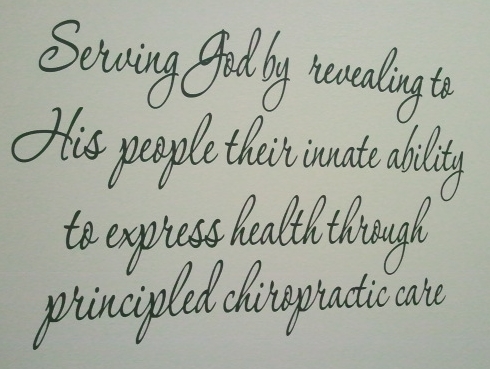 Serving God by revealing to
His people their innate ability
to express health through
principled chiropractic care